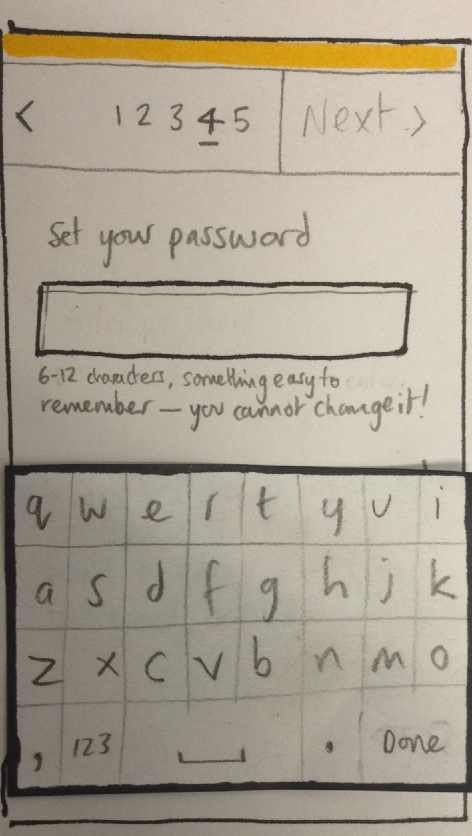 < 1 2 3 4 5 Next >
Set your password
6-12 characters, something easy to
remember — you cannot change it!
q w e r t y u i
a s d f g h j k
z x c v b n m o
, 123 . Done